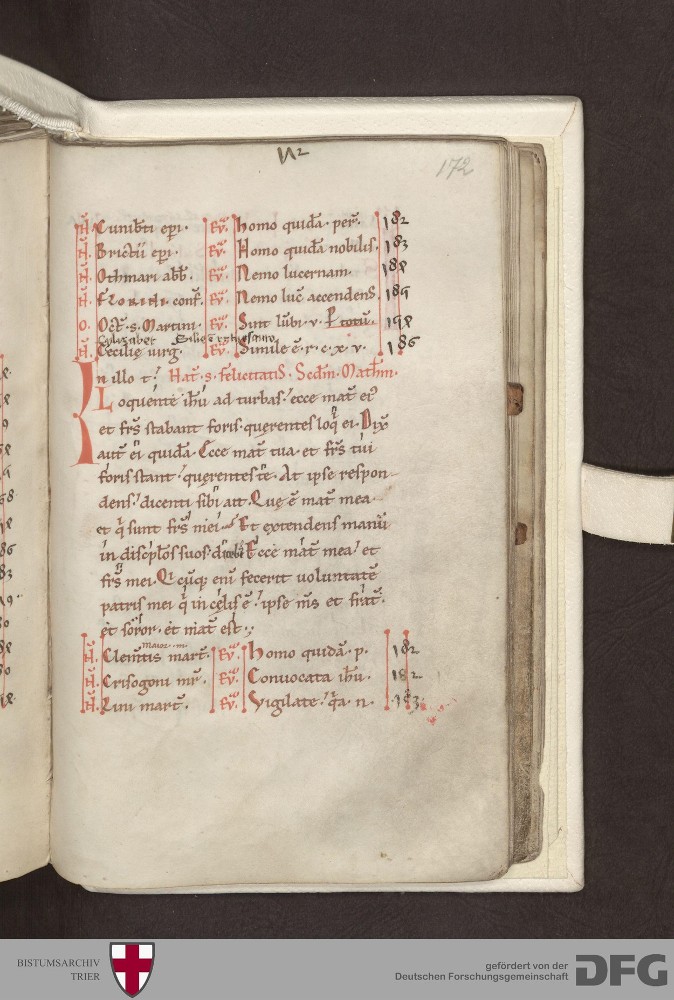 172
N̄. Cunib̄ti ep̄i. Ev̄. homo quidā. per̄. 182
N̄. Brictii ep̄i. Ev̄. Homo quidā nobilis. 183
N̄. Othmari abb̄. Ev̄. Nemo lucernam. 188
N̄. FLORINI conf̄. Ev̄. Nemo luc̄ accendens.
O. Oct̄. s. Martini. Ev̄. Sint lūbi. v. totū.
Elyzabet
N̄. Cecilie virg. Ev̄. Simile ē. r. c. x. v. 186
In illo t̄. Nat̄. s. felicitatis. Scdm̄. Math̄m.
Loquente ih̄u ad turbas. ecce mat̄ ei᷒
et fr̄s stabant foris. querentes loq̄ ei. Dix̄
aut̄ ei quidā. Ecce mat̄ tua. et fr̄s tui
foris stant. querentes te. At ipse respon-
dens. dicenti sibi ait. Que ē mat̄ mea.
et q̄ sunt fr̄s mei. Et extendens manū
in disciplo̅s suos. dixit Ecce mat̄ mea. et
fr̄s mei. Qicūq; eni̅ fecerit voluntatē
patris mei q̄ in celis ē. ipse m̄s et frat̄.
et soror. et mat̄ est.
maior. m.
N̄. Clem̄tis mart̄. Ev̄. homo quidā. p. 182
N̄. Crisogoni mr̄. Ev̄. Convocata ih̄u. 182
N̄. Lini mart̄. Ev̄. Vigilate. q̄a. n. 183
BISTUMSARCHIV
TRIER
gefördert von der
Deutschen Forschungsgemeinschaft
DFG